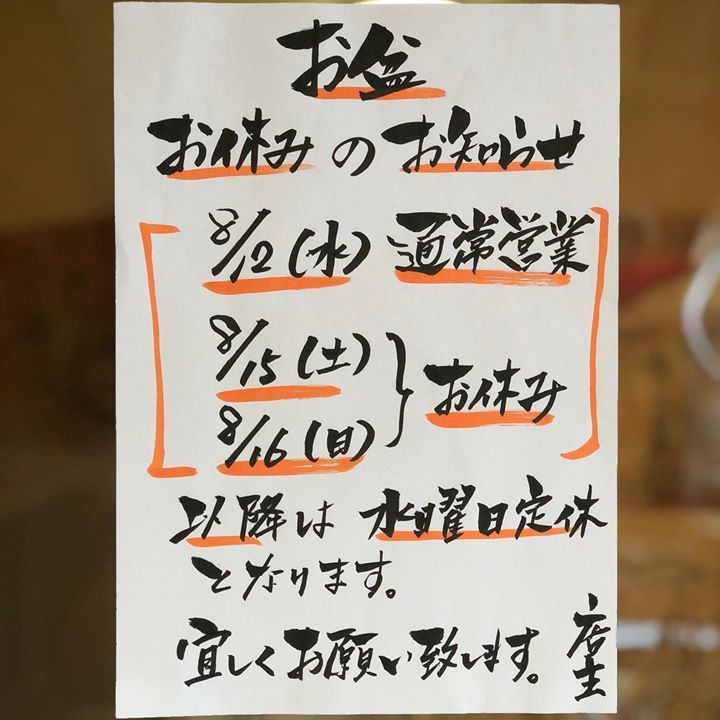 お盆
お休みのお知らせ
8/12(水) 通常営業
8/15(土)
8/16(日) お休み
以降は 水曜日定休
となります。
宜しくお願い致します。
店主